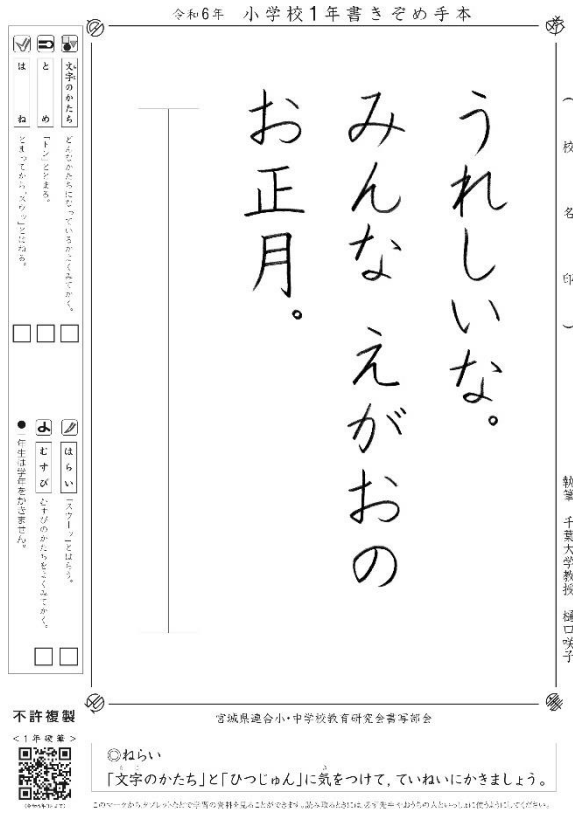 令和6年 小学校1年書きぞめ手本
(校名印)
執筆 千葉大学教授 樋口咲子
うれしいな。
みんな えがおの
お正月。
文字のかたち どんなかたちになっているかよくみてかく。
とめ 「トン」ととまる。
はね とまってから、「スウッ」とはねる。
はらい 「スウーッ」とはらう。
むすび むすびのかたちをよくみてかく。
●一年生は学年をかきません。
宮城県連合小・中学校教育研究会書写部会
不許複製
<1年硬筆>
◎ねらい
「文字のかたち」と「ひつじゅん」に気をつけて，ていねいにかきましょう。
このマークからタブレットなどで学習の資料を見ることができます。読み取るときには必ず先生やおうちの人といっしょに使うようにしてください。